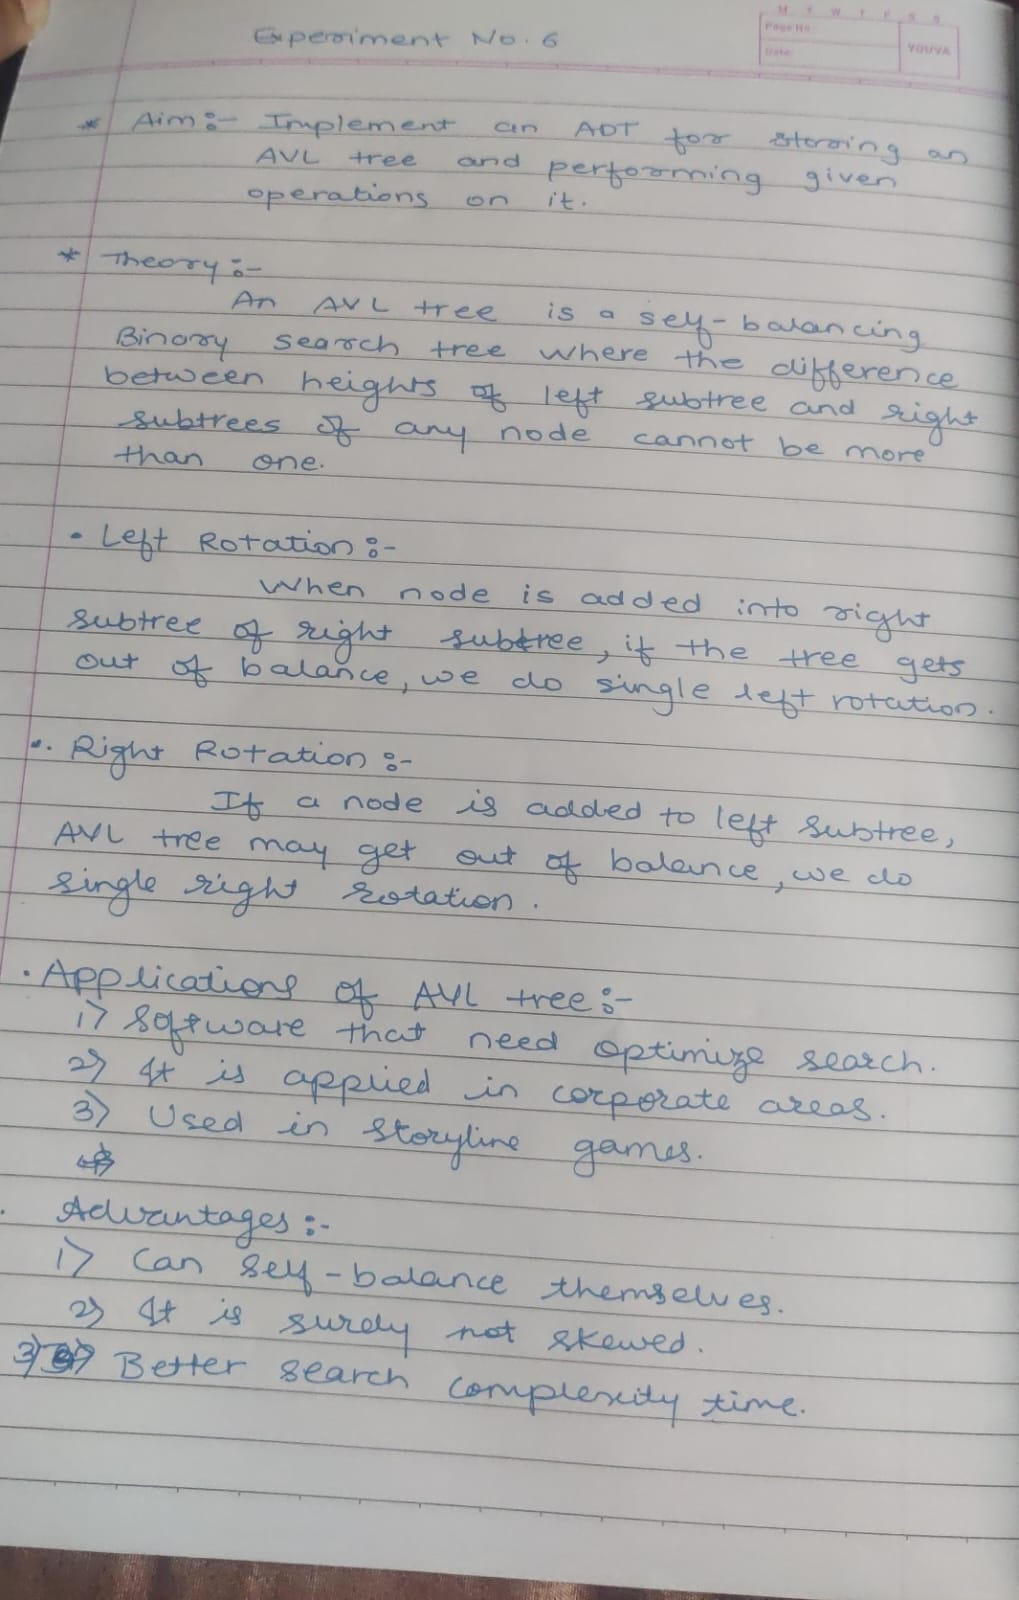 M T W T F S S
Page No
Date
YOUVA
Experiment No. 6
* Aim :- Implement an ADT for storing an
AVL tree and performing given
operations on it.
* Theory :-
An AVL tree is a self-balancing
Binary search tree where the difference
between heights of left subtree and right
subtrees of any node cannot be more
than one.
• Left Rotation :-
When node is added into right
subtree of right subtree, if the tree gets
out of balance, we do single left rotation.
• Right Rotation :-
If a node is added to left subtree,
AVL tree may get out of balance, we do
single right rotation.
• Applications of AVL tree :-
1) Software that need optimize search.
2) It is applied in corporate areas.
3) Used in storyline games.
• Advantages :-
1) Can self-balance themselves.
2) It is surely not skewed.
3) Better search complexity time.